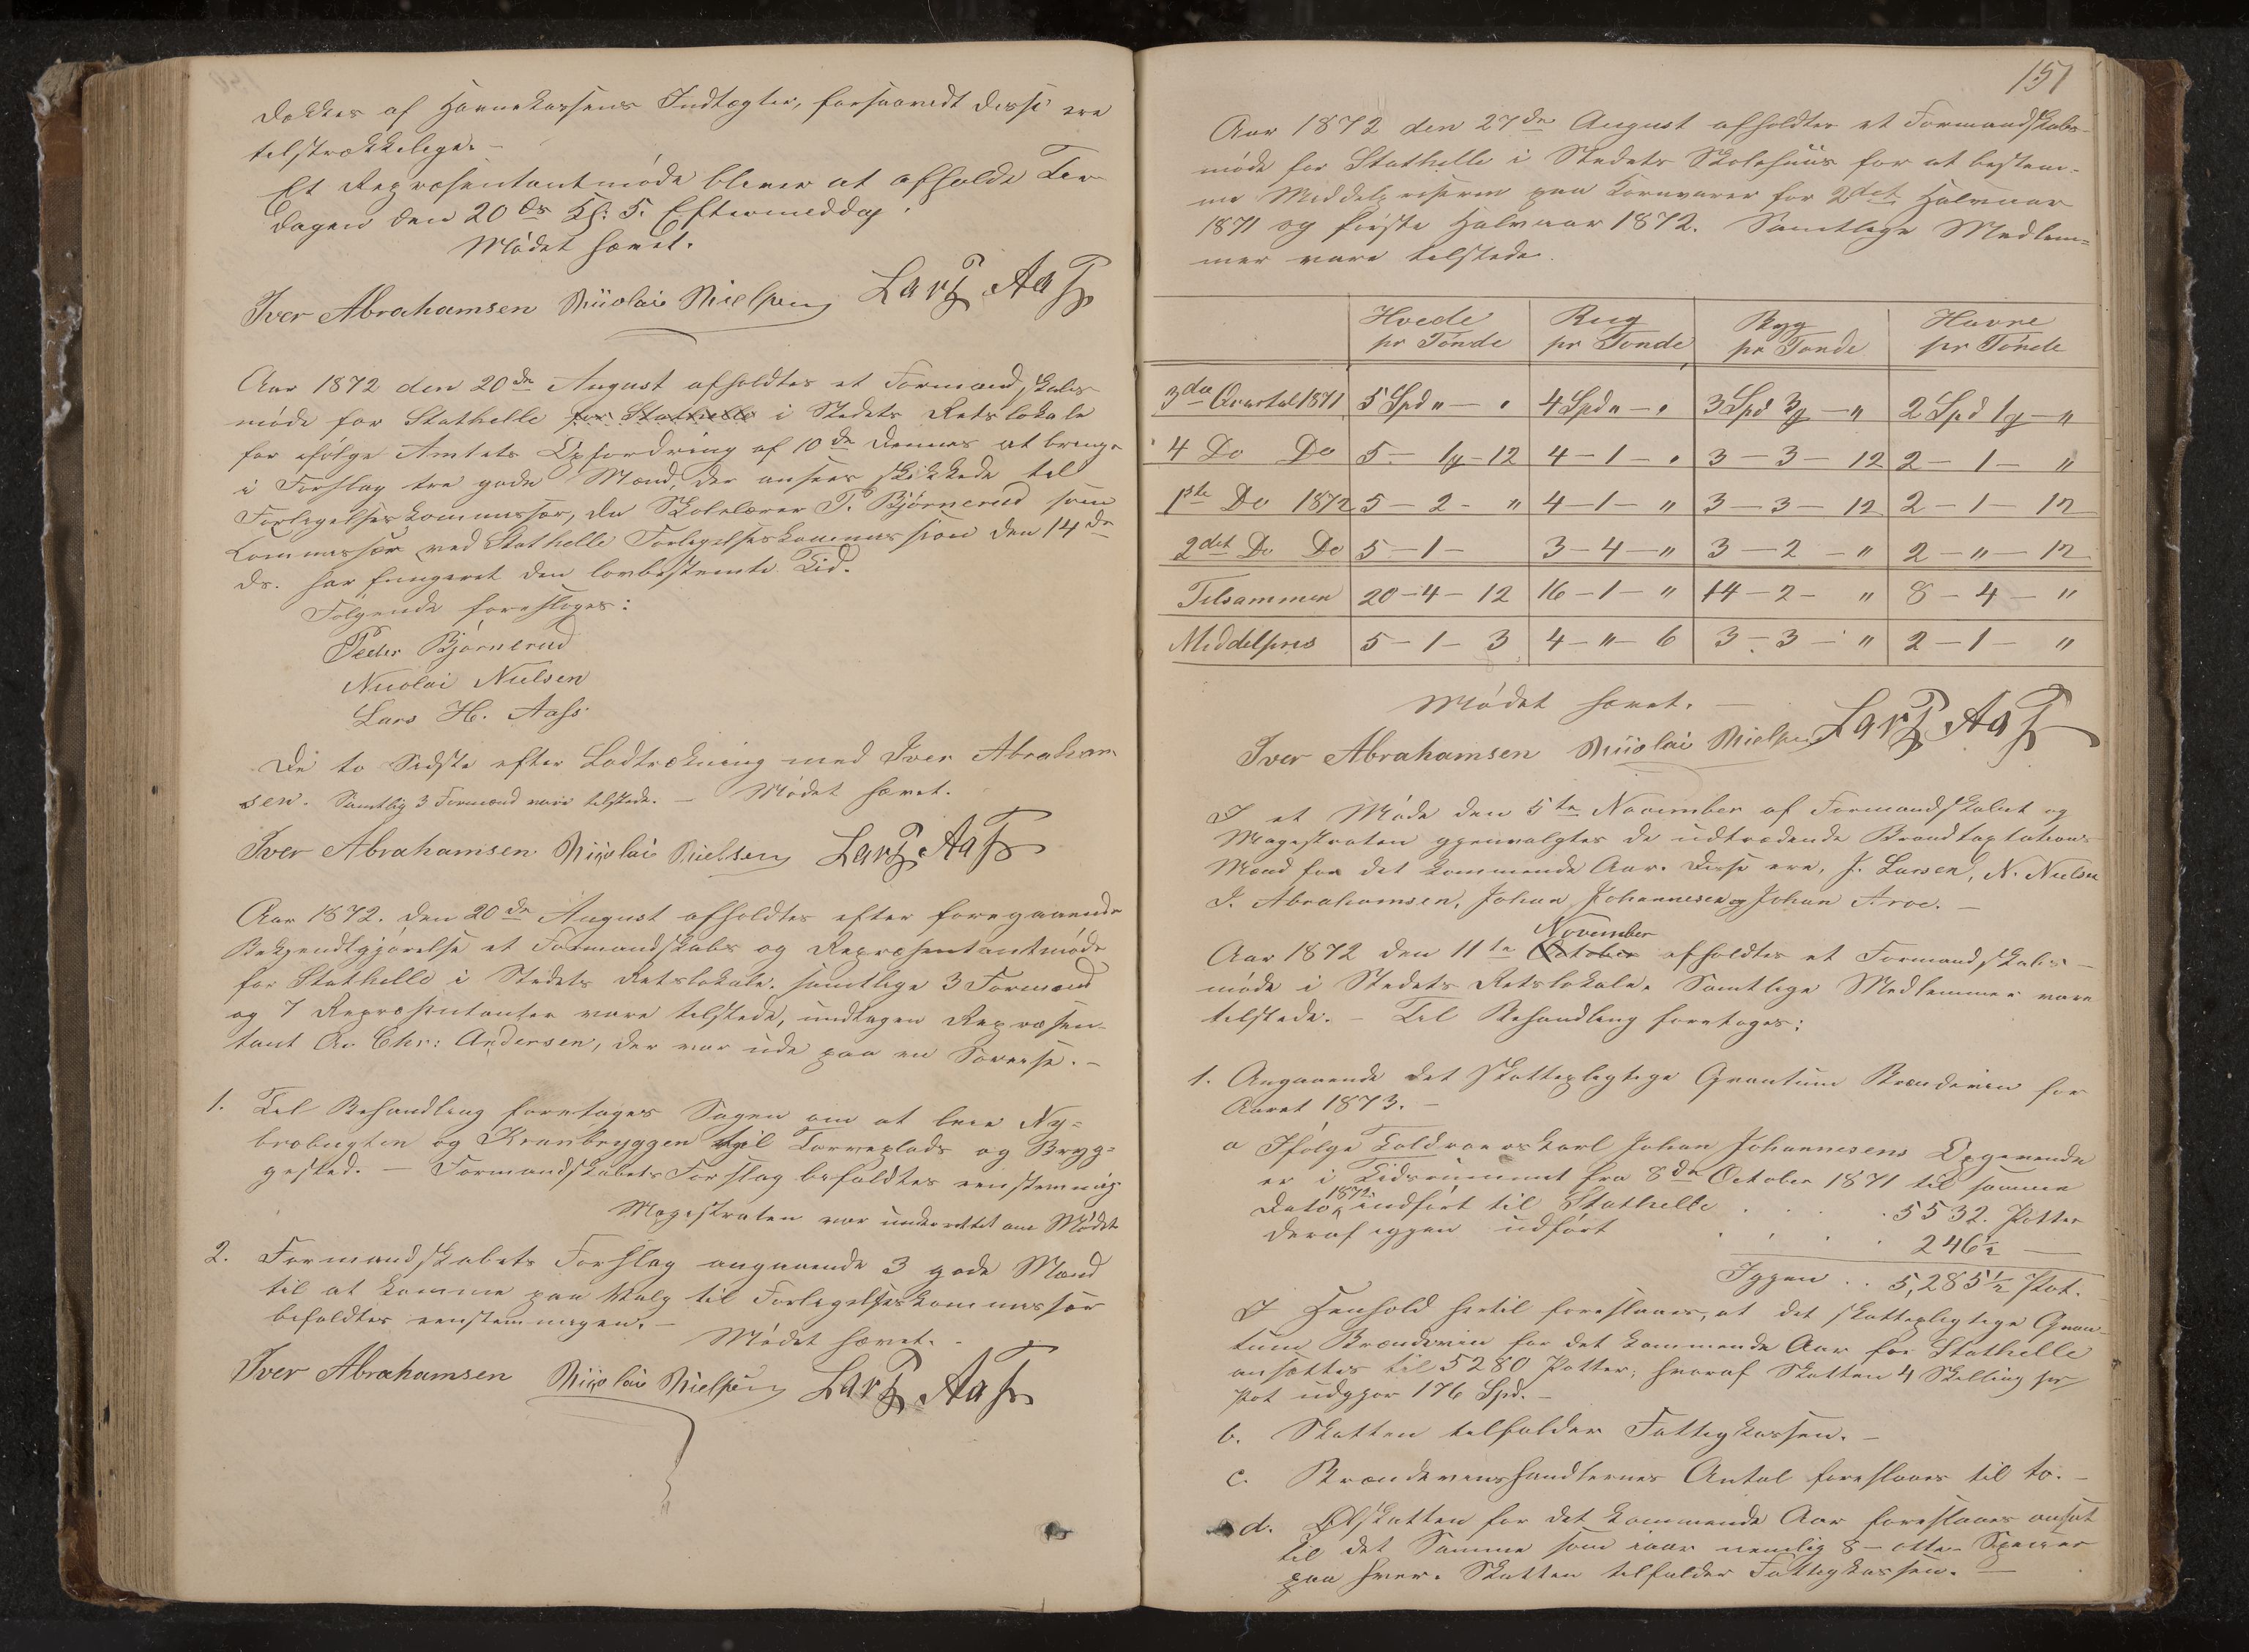 dækkes af Havnekassens Indtægter, forsaavidt disse ere
tilstrækkelige. –
Et Repræsentantmøde bliver at afholde Tirs-
dagen den 20de Kl: 5. Eftermiddag.
Mødet hævet.
Iver Abrahamsen Nicolai Nielsen Lars Aas
Aar 1872 den 20de August afholdtes et Formandskabs
møde for Stathelle for Stathelle i Stedets Retslokale
for ifølge Amtets Opfordring af 10de dennes at bringe
i Forslag tre gode Mænd, der ansees skikkede til
Forligelseskommissær, da Skolelærer P. Bjørnerud som
Kommissær ved Stathelle Forligelseskommission den 14de
ds. har fungeret den lovbestemte Tid.
Følgende foresloges:
Peder Bjørnerud
Nicolai Nielsen
Lars H. Aass
De to Sidste efter Lodtrækning med Iver Abraham
sen. Samtlig 3 Formænd vare tilstede. – Mødet hævet.
Iver Abrahamsen Nicolai Nielsen Lars Aas
Aar 1872. den 20de August afholdtes efter foregaaende
Bekjendtgjørelse et Formandskabs og Repræsentantmøde
for Stathelle i Stedets Retslokale. Samtlige 3 Formænd
og 7 Repræsentanter vare tilstede, undtagen Repræsen-
tant A. Chr: Andersen, der var ude paa en Søreise. –
1. Til Behandling foretages Sagen om at leie Ny-
brobugten og Kranbryggen til Torveplads og Bryg-
gested. – Formandskabets Forslag bifaldtes eenstemmig
Magistraten var underrettet om Mødet
2. Formandskabets Forslag angaaende 3 gode Mænd
til at komme paa Valg til Forligelseskommissær
bifaldtes eenstemmigen. –
Mødet hævet. –
Iver Abrahamsen Nicolai Nielsen Lars Aas
151
Aar 1872 den 27de August afholdtes et Formandskabs-
møde for Stathelle i Stedets Skolehuus for at bestem-
me Middelprisen paa Kornvarer for 2det Halvaar
1871 og første Halvaar 1872. Samtlige Medlem-
mer vare tilstede.
Hvede pr Tønde Rug pr Tønde Byg pr Tønde Havre pr Tønde
3die Qvartal 1871 5 Spd „ – „ 4 Spd „ – „ 3 Spd 3 – „ 2 Spd 1 – „
4 Do Do 5 – 1 – 12 4 – 1 – „ 3 – 3 – 12 2 – 1 – „
1ste Do 1872 5 – 2 – „ 4 – 1 – „ 3 – 3 – 12 2 – 1 – 12
2det Do Do 5 – 1 – 3 – 4 – „ 3 – 2 – „ 2 – „ – 12
Tilsammen 20 – 4 – 12 16 – 1 – „ 14 – 2 – „ 8 – 4 – „
Middelpris 5 – 1 – 3 4 – „ – 6 3 – 3 – „ 2 – 1 – „
Mødet hævet. –
Iver Abrahamsen Nicolai Nielsen Lars Aas
I et Møde den 5te November af Formandskabet og
Magistraten gjenvalgtes de udtrædende Brandtaxtations-
Mænd for det kommende Aar. Disse ere, J. Larsen, N. Nielsen
I. Abrahamsen, Johan Johannesen og Johan Aroe. –
November
Aar 1872 den 11te October afholdtes et Formandskabs-
møde i Stedets Retslokale. Samtlige Medlemmer vare
tilstede. – Til Behandling foretages:
1. Angaaende det skattepligtige Qvantum Brændeviin for
Aaret 1873. –
a Ifølge Toldroerskarl Johan Johannesens Opgivende
er i Tidsrummet fra 8de October 1871 til samme
Dato 1872 indført til Stathelle . . . . 5532. Potter
deraf igjen udført . . . . 246½ —
Igjen . . 5,285½ Pot.
I Henhold hertil foreslaaes, at det skattepligtige Qvan-
tum Brændeviin for det kommende Aar for Stathelle
ansættes til 5280 Potter; hvoraf Skatten 4 Skilling pr
Pot udgjør 176 Spd. –
b. Skatten tilfalder Fattigkassen. –
c. Brændeviinshandlernes Antal foreslaaes til to. –
d. Ølskatten for det kommende Aar foreslaaes ansat
til det Samme som iaar nemlig 8 – otte – Species
paa hver. Skatten tilfalder Fattigkassen. –